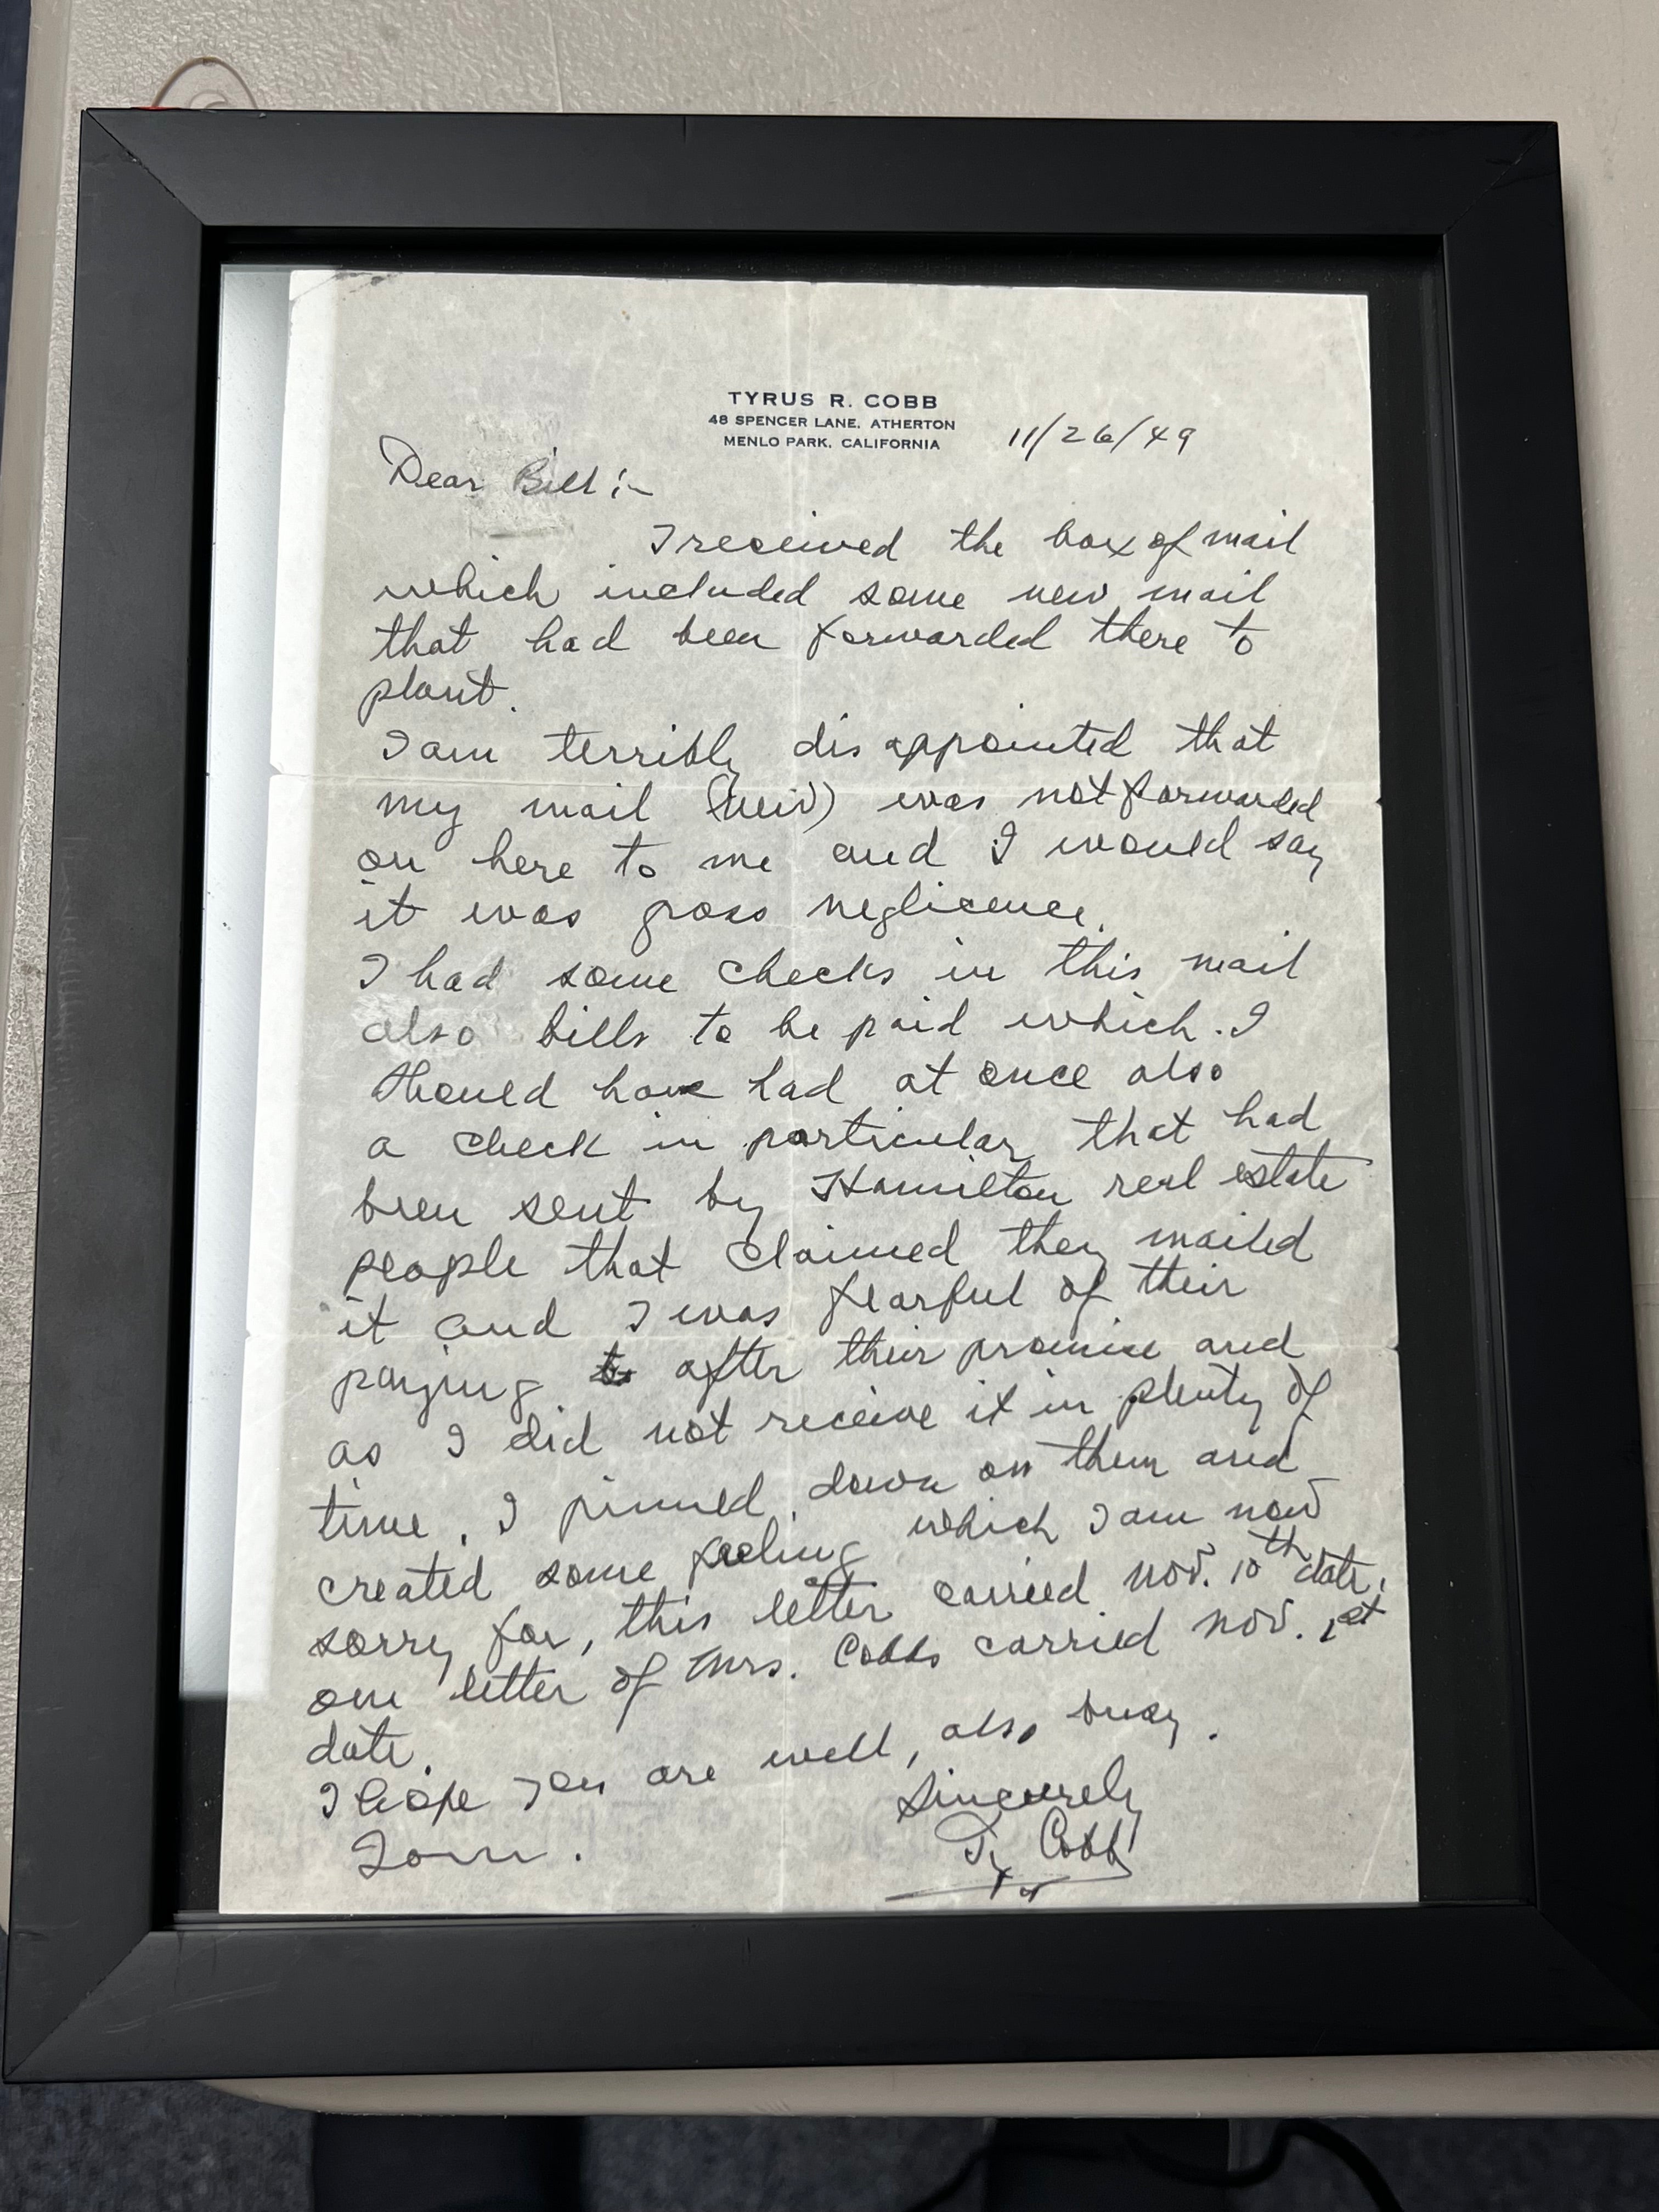 TYRUS R. COBB
48 SPENCER LANE, ATHERTON
MENLO PARK, CALIFORNIA
11/26/49
Dear Bill :-
I received the box of mail
which included some new mail
that had been forwarded there to
plant.
I am terribly disappointed that
my mail (new) was not forwarded
on here to me and I would say
it was gross neglicence.
I had some checks in this mail
also bills to be paid which. I
should have had at once also
a check in particular that had
been sent by Hamilton real estate
people that claimed they mailed
it and I was fearful of their
paying after their promise and
as I did not receive it in plenty of
time, I pinned down on them and
created some feeling which I am now
sorry for, this letter carried Nov. 10th date,
one letter of Mrs. Cobbs carried Nov. 1st
date.
I hope you are well, also busy.
Sincerely
Ty Cobb